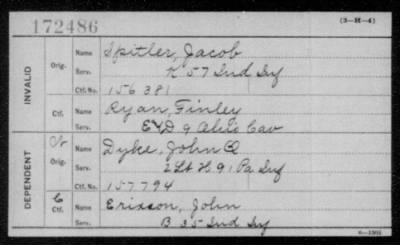 172486
(3-H-4)
INVALID
Orig.
Name Spitler, Jacob
Serv. K 57 Ind Inf
Ctf. No. 156381
Ctf.
Name Ryan, Finley
Serv. E & D 9 Ohio Cav
DEPENDENT
Orig.
Name Dyke, John Q
Serv. 2 Lt H. 91 Pa Inf
Ctf. No. 157794
C
Ctf.
Name Erixson, John
Serv. B 35 Ind Inf